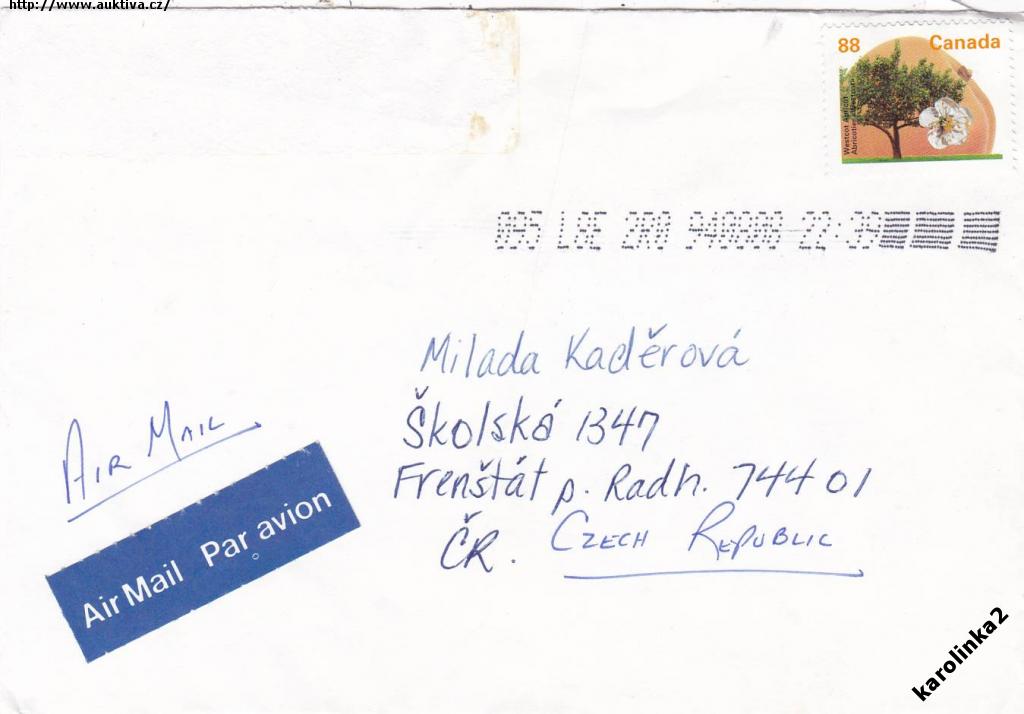 http://www.auktiva.cz/
88 Canada
Westcot Apricot
Abricotier Westcot
L8E 2R0 22:39
Milada Kaděrová
Školská 1347
Frenštát p. Radh. 744 01
ČR. CZECH REPUBLIC
AIR MAIL
Air Mail Par avion
karolinka2